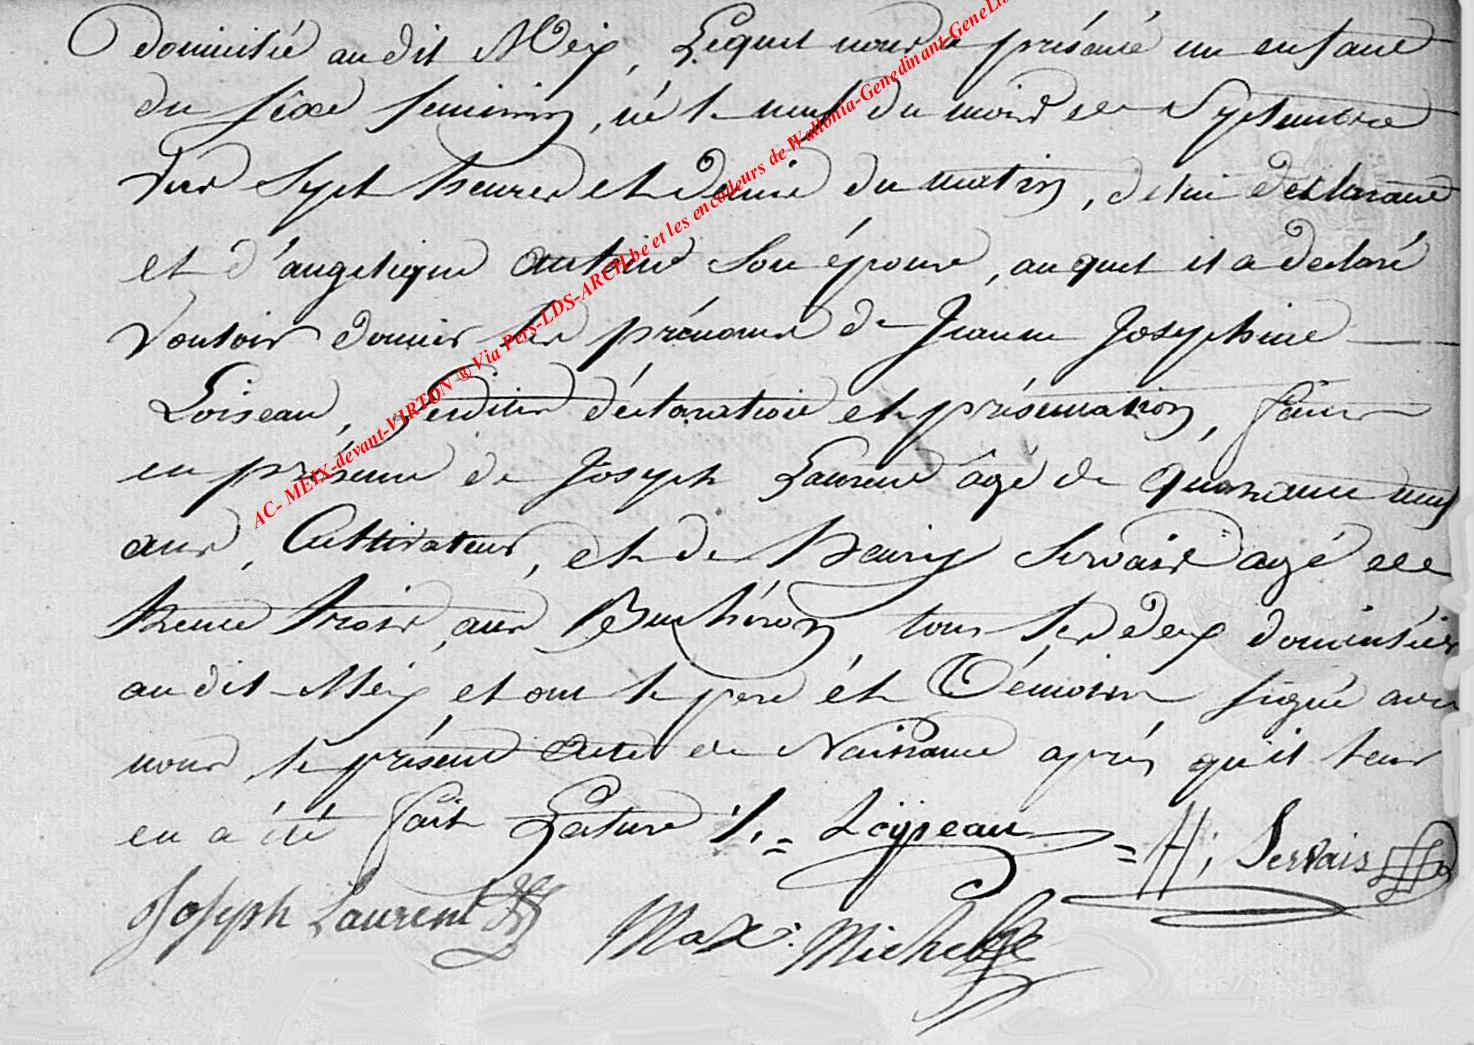 domicilié au dit Meix, Lequel nous a présenté un enfant
du sexe feminin, né le neuf du mois de Septembre
sur Sept heures et demie du matin, de lui déclarant
et d'angelique antoine son épouse, auquel il a déclaré
vouloir donner les prénoms de Jeanne Josephine
Loiseau, Lesdites déclaration et présentation, faites
en présence de Joseph Laurent âgé de quarante neuf
ans, Cultivateur, et de Henry Servais agé de
trente trois ans Buchéron, tous les deux domiciliés
au dit Meix et ont le pere et Témoins signé avec
nous le présent acte de Naissance après qu'il leur
en a été fait Lecture ./. =
Loÿseau = H; Servais
Joseph Laurent Max: Michel
AC- MEIX-devant-VIRTON ® Via Pers-LDS-ARCH.be et les encodeurs de Wallonia-Genedinant-GeneLu